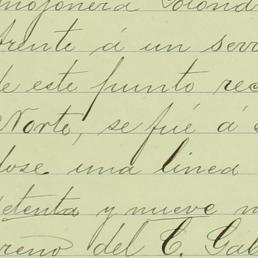 mojonera Colond
frente á un serr
de este punto rec
Norte, se fué á s
dose una linea
setenta y nueve m
reno del C. Gab